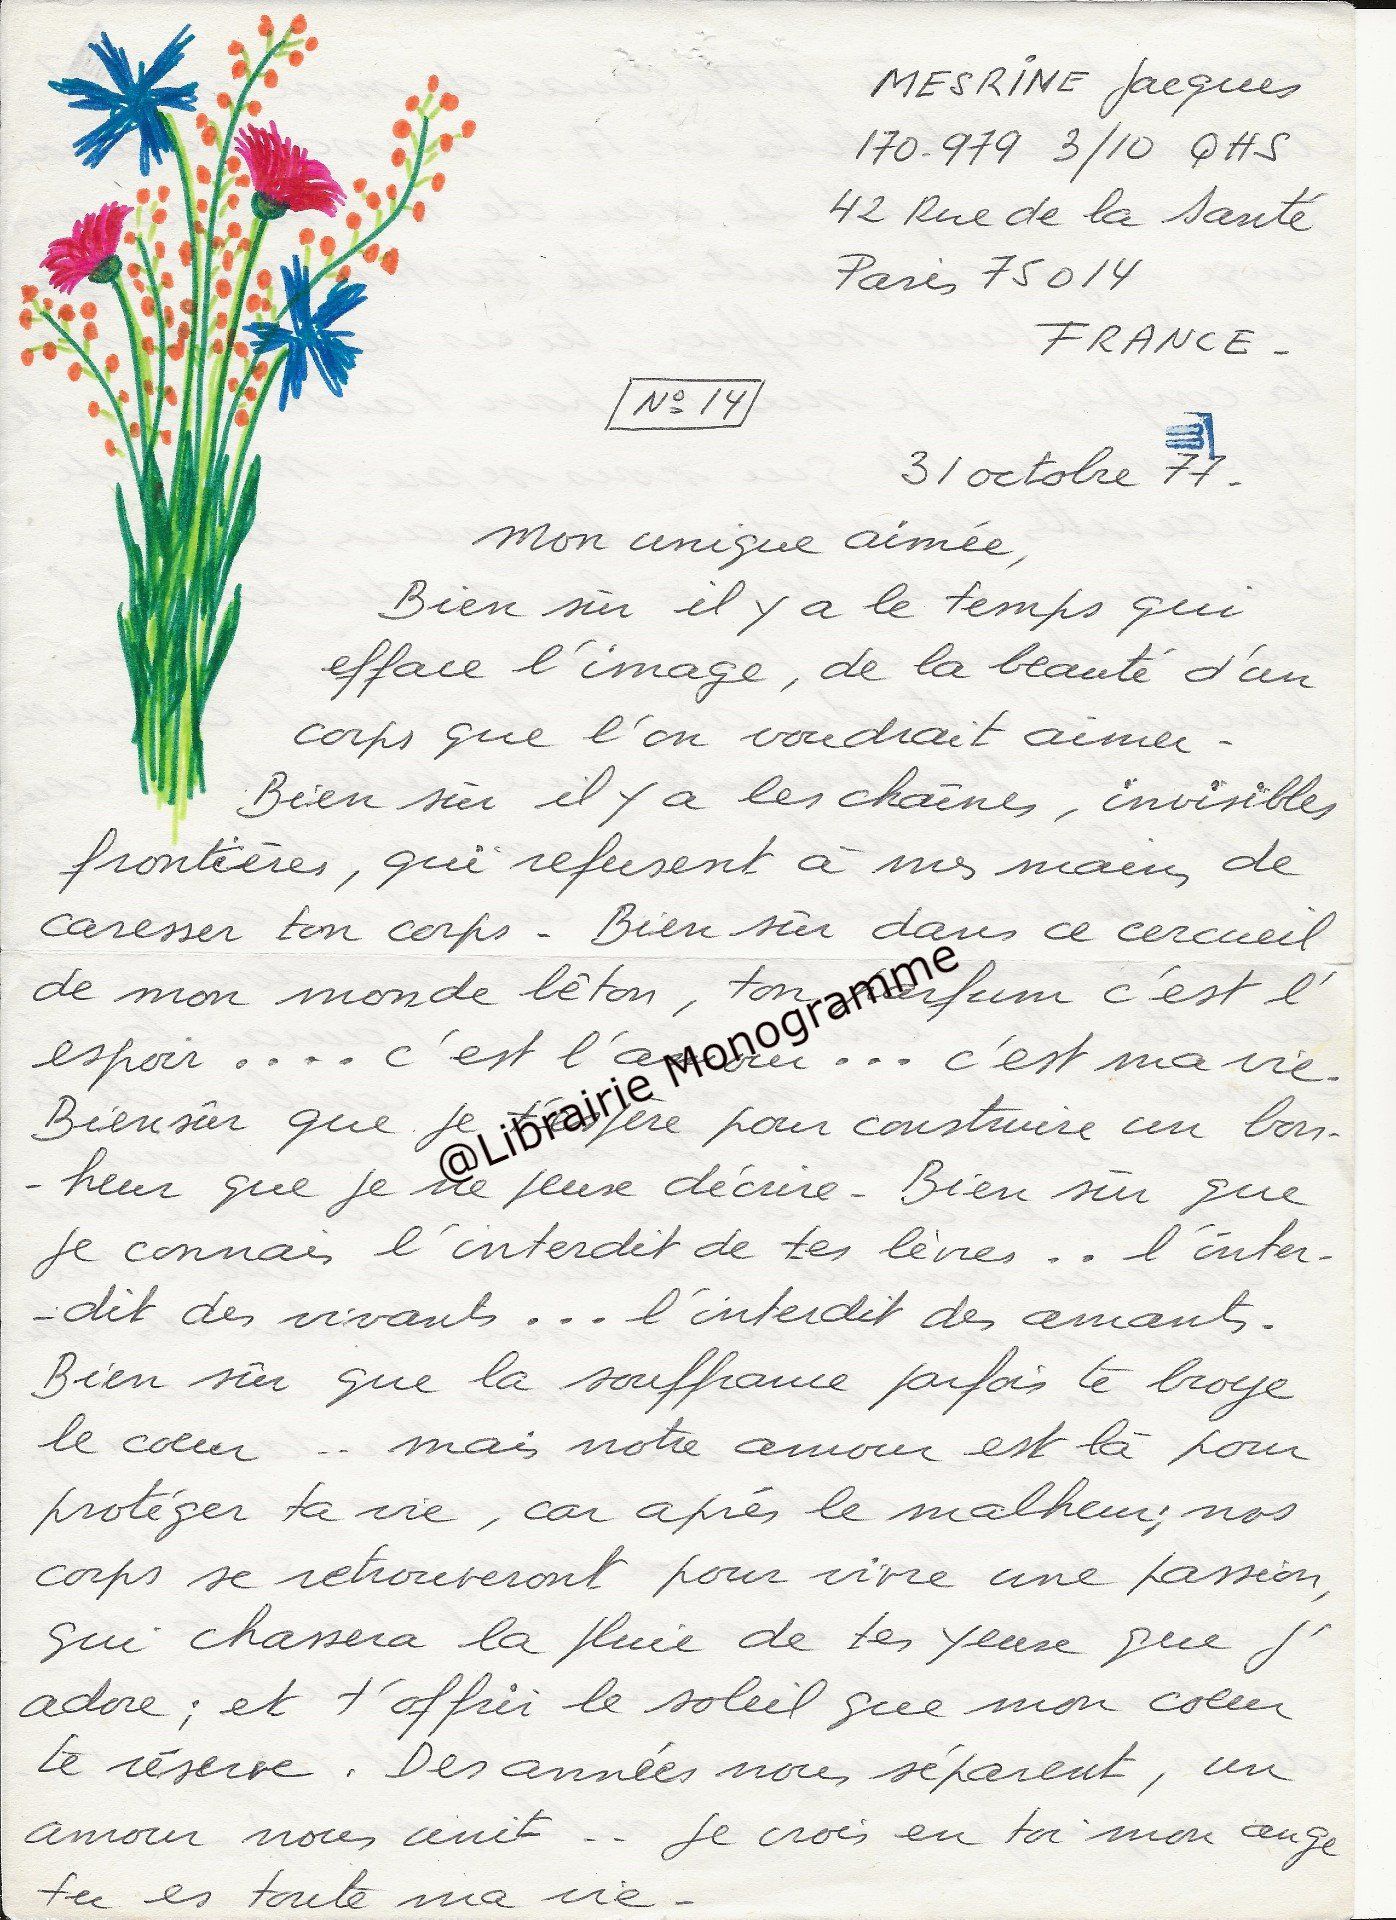 MESRINE Jacques
170.979 3/10 QHS
42 Rue de la Santé
Paris 75014
FRANCE -
N° 14
31 octobre 77.
Mon unique aimée,
Bien sûr il y a le temps qui
efface l'image, de la beauté d'un
corps que l'on voudrait aimer -
Bien sûr il y a les chaînes, invisibles
frontières, qui refusent à mes mains de
caresser ton corps - Bien sûr dans ce cercueil
de mon monde béton, ton parfum c'est l'
espoir .... c'est l'amour ... c'est ma vie.
Bien sûr que je t'espère pour construire un bon-
- heur que je ne peux décrire - Bien sûr que
je connais l'interdit de tes lèvres .. l'inter-
-dit des vivants ... l'interdit des amants.
Bien sûr que la souffrance parfois te broye
le coeur .. mais notre amour est là pour
protéger ta vie, car après le malheur; nos
corps se retrouveront pour vivre une passion,
qui chassera la pluie de tes yeux que j'
adore; et t'offrir le soleil que mon coeur
te réserve. Des années nous séparent, un
amour nous unit .. Je crois en toi mon ange
tu es toute ma vie -
@Librairie Monogramme